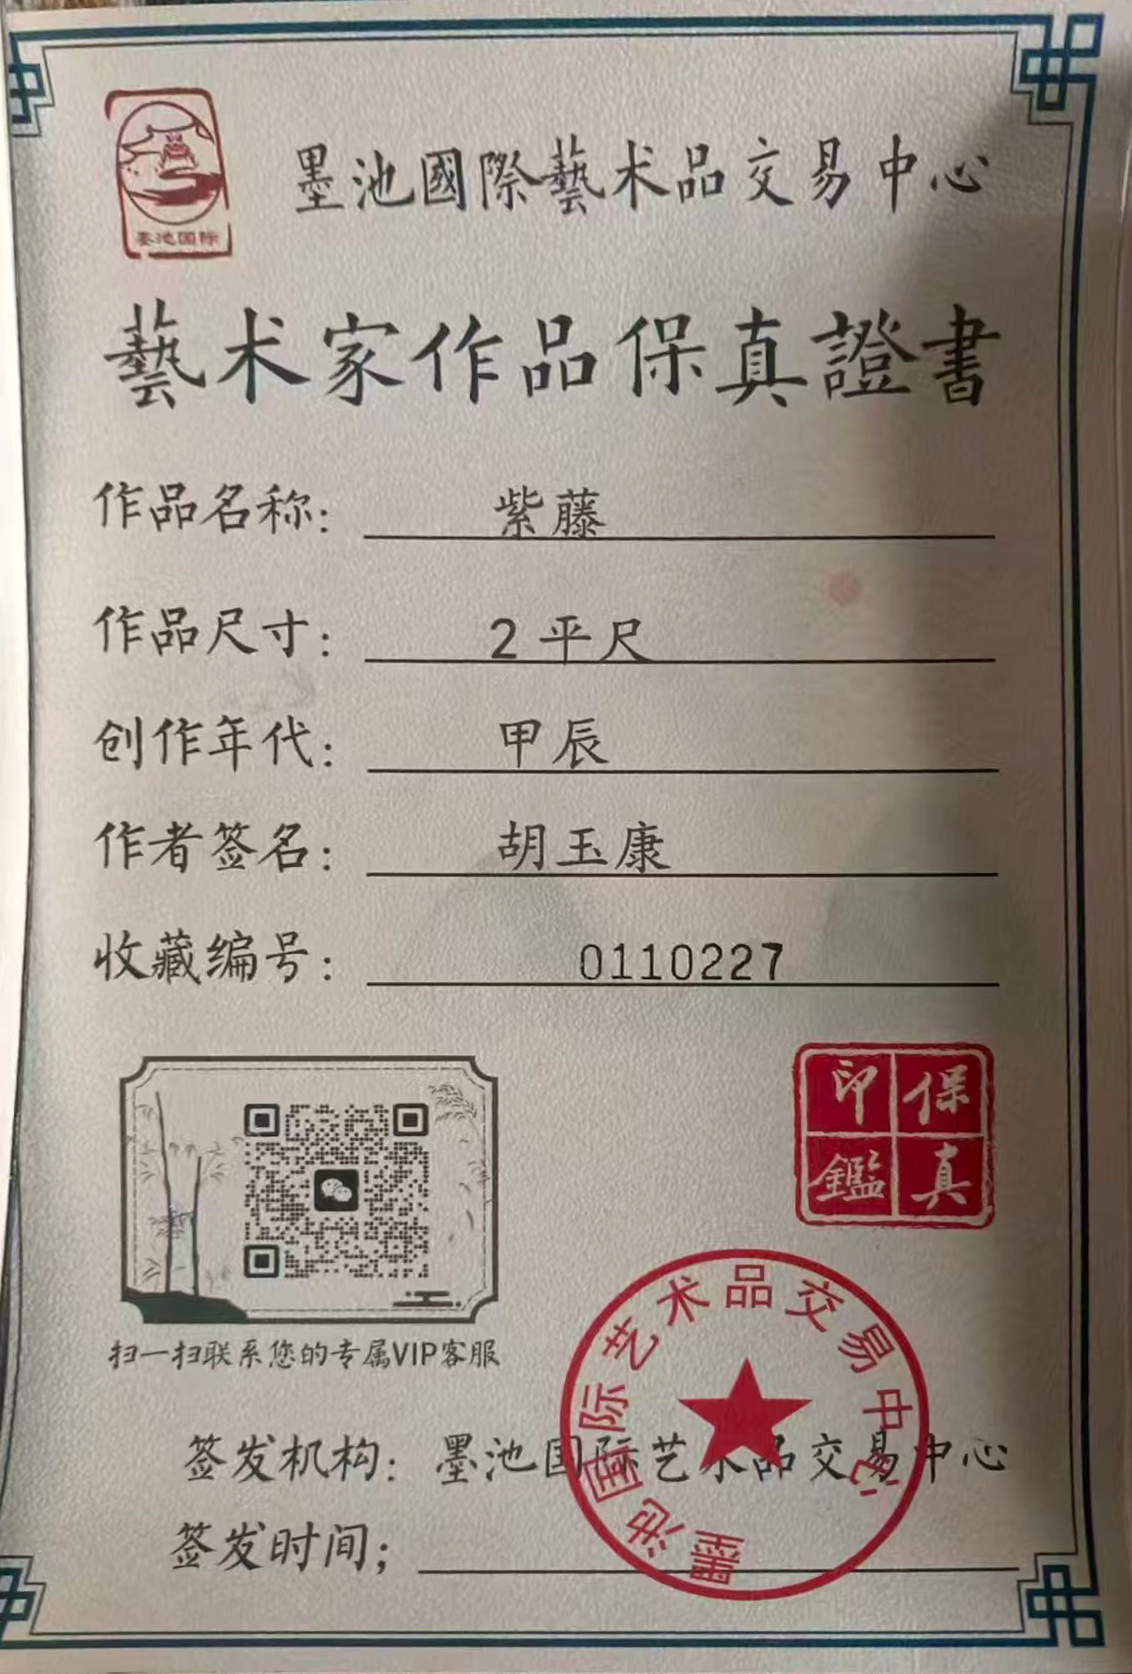 墨池国际
墨池國際藝术品交易中心
藝术家作品保真證書
作品名称: 紫藤
作品尺寸: 2平尺
创作年代: 甲辰
作者签名: 胡玉康
收藏编号: 0110227
保真
印鑑
扫一扫联系您的专属VIP客服
墨池国际艺术品交易中心
签发机构: 墨池国际艺术品交易中心
签发时间;